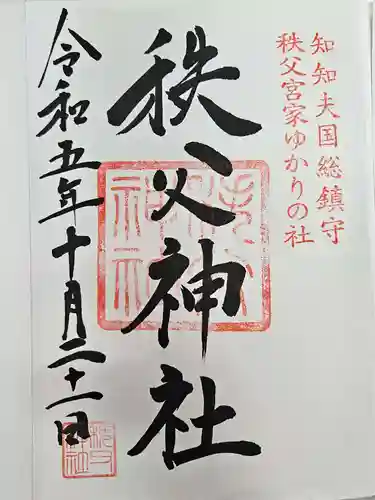 知知夫国総鎮守
秩父宮家ゆかりの社
秩父神社
令和五年十月二十一日
秩父神社